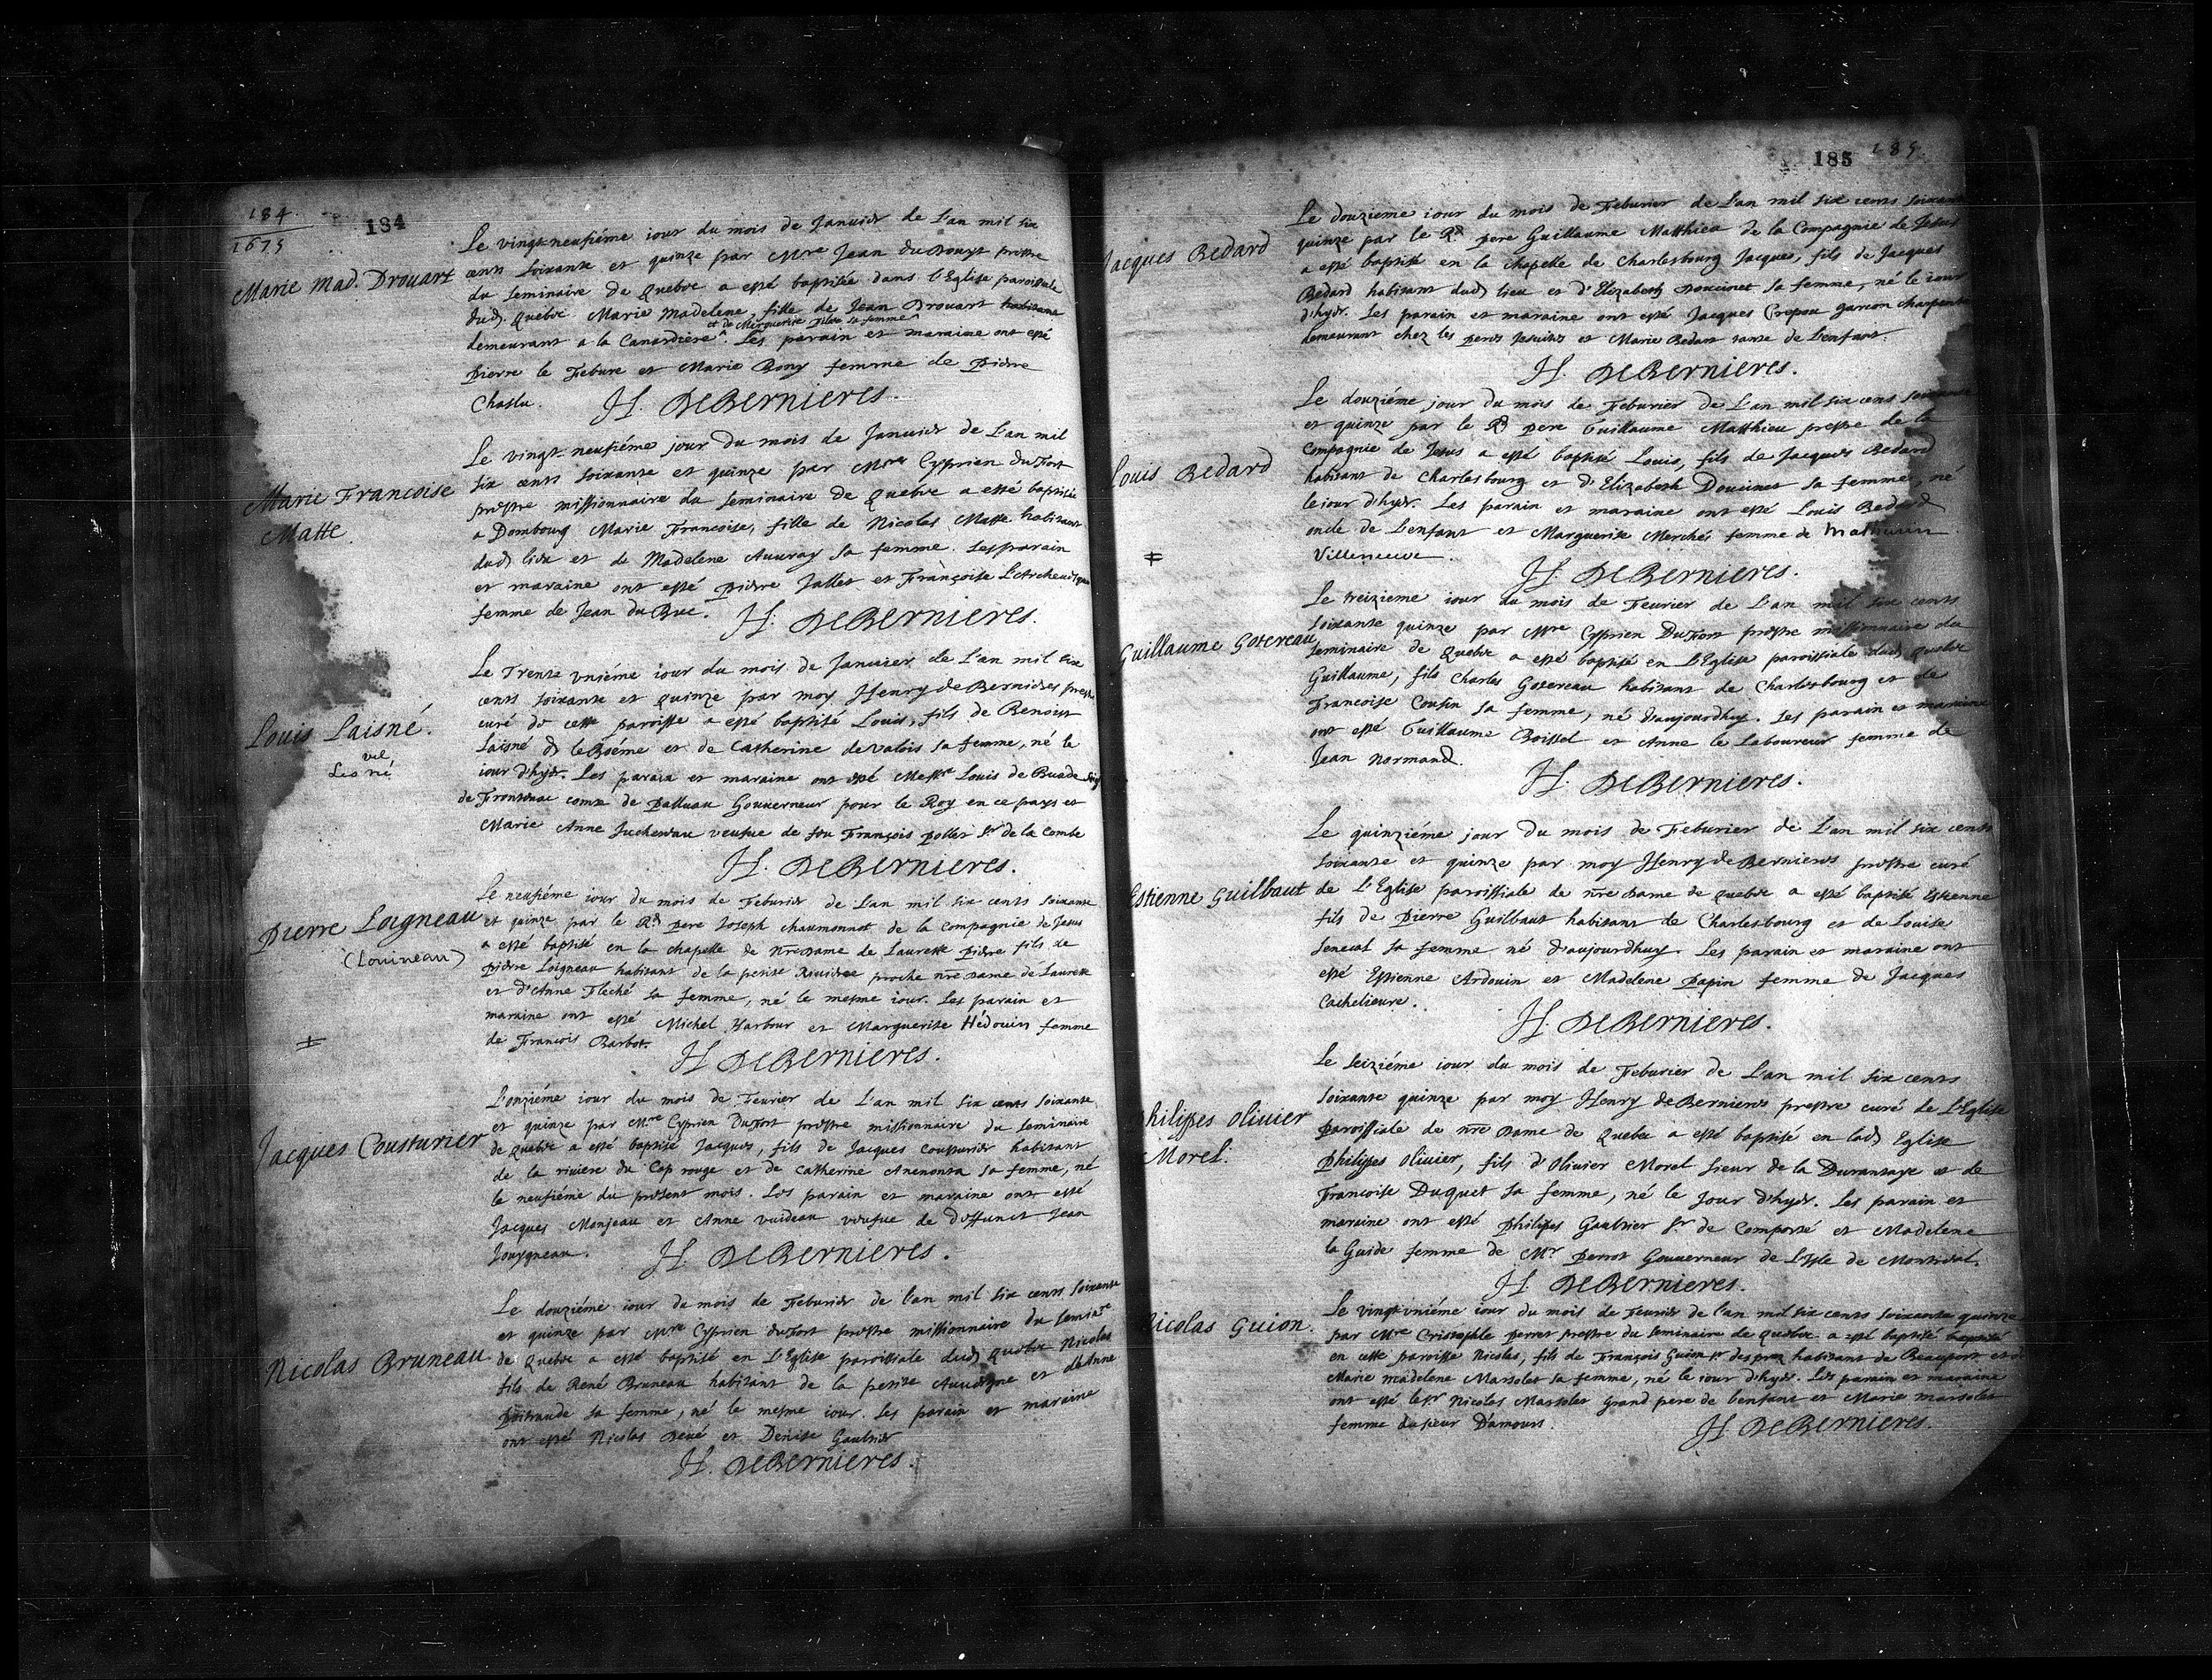 184
1675
184
Marie Mad. Drouart
Le vingt-neufiéme iour du mois de Januier de L'an mil six
cents soixante et quinze par Mre Jean du Douyt prestre
du seminaire de Quebec a esté baptisée dans l'Eglise paroissiale
dud. Quebec Marie Madelene, fille de Jean Drouart habitant
et de Marguerite sa femme
demeurant a la Canardiere. Les parain et maraine ont esté
Pierre le Febure et Marie Bony femme de Pierre
Chaslu. H. DEBERNIERES.
Marie Francoise
Matte.
Le vingt-neufiéme jour du mois de Januier de L'an mil
six cents soixante et quinze par Mre Cyprien Dufort
prestre missionnaire du seminaire de Quebec a esté baptisée
a Dombourg Marie Francoise, fille de Nicolas Matte habitant
dud. lieu et de Madelene Auuray sa femme. Les parain
et maraine ont esté Pierre Jallet et Françoise L'Archeuesque
femme de Jean du Buc. H. DEBERNIERES.
Louis Laisné.
vel
Lesné
Le Trente vniéme iour du mois de Januier de L'an mil six
cents soixante et quinze par moy Henry de Bernieres prestre
curé de cette paroisse a esté baptisé Louis, fils de Benoist
Laisné d. le Boéme et de Catherine de valois sa femme, né le
iour d'hyer. Les parain et maraine ont esté Messre Louis de Buade
de Frontenac comte de Palluau Gouuerneur pour le Roy en ce pays et
Marie Anne Juchereau veufue de feu François Pollet Sr de la Combe
H. DEBERNIERES.
Pierre Loigneau
(Louineau)
Le neufiéme iour du mois de Feburier de L'an mil six cents soixante
et quinze par le Rd pere Joseph Chaumonnot de la Compagnie de Jesus
a esté baptisé en la chapelle de nre dame de Laurette Pierre fils de
Pierre Loigneau habitant de la petite Riuiere proche nre dame de Laurette
et d'Anne Fleché sa femme, né le mesme iour. Les parain et
maraine ont esté Michel Harbour et Marguerite Hédouin femme
de François Barbot. H DEBERNIERES.
Jacques Cousturier
L'onziéme iour du mois de Feurier de L'an mil six cents soixante
et quinze par Mre Cyprien Dufort prestre missionnaire du seminaire
de Quebec a esté baptisé Jacques, fils de Jacques Cousturier habitant
de la riuiere du Cap rouge et de Catherine Anenonta sa femme, né
le neufiéme du present mois. Les parain et maraine ont esté
Jacques Monjeau et Anne vuideau veufue de deffunct Jean
Jouygneau. H. DEBERNIERES.
Nicolas Bruneau
Le douziéme iour du mois de Feburier de l'an mil six cents soixante
et quinze par Mre Cyprien dufort prestre missionnaire du semire
de Quebec a esté baptisé en L'Eglise paroissiale dud. Quebec Nicolas
fils de René Bruneau habitant de la petite Auuergne et d'Anne
Poitraude sa femme, né le mesme iour. Les parain et maraine
ont esté Nicolas Deué et Denise Gaultier
H. DEBERNIERES.
185 185.
Jacques Bedard
Le douzieme iour du mois de Feburier de L'an mil six cens soixante
quinze par le Rd pere Guillaume Matthieu de la Compagnie de Jesus
a esté baptisé en la chapelle de Charlesbourg Jacques, fils de Jacques
Bedard habitant dud. lieu et d'Elizabeth Doucinet sa femme, né le iour
d'hyer. Les parain et maraine ont esté Jacques Crepeu garcon charpentier
demeurant chez les peres Jesuites et Marie Bedart tante de L'enfant.
H. DEBERNIERES.
Louis Bedard
Le douziéme jour du mois de Feburier de L'an mil six cens soixante
et quinze par le Rd pere Guillaume Matthieu prestre de la
Compagnie de Jesus a esté baptisé Louis, fils de Jacques Bedard
habitant de Charlesbourg et d'Elizabeth Doucinet sa femme, né
le iour d'hyer. Les parain et maraine ont esté Louis Bedard
oncle de L'enfant et Marguerite Merché femme de Mathurin
Villeneuve.
H. DEBERNIERES.
Guillaume Gotereau
Le treizieme iour du mois de Feurier de L'an mil six cents
soixante quinze par Mre Cyprien Dufort prestre missionnaire du
seminaire de Quebec a esté baptisé en L'Eglise paroissiale dud. Quebec
Guillaume, fils Charles Gotereau habitant de Charlesbourg et de
Francoise Cousin sa femme, né d'aujourdhuy. Les parain et maraine
ont esté Guillaume Boissel et Anne le Laboureur femme de
Jean Normand.
H. DEBERNIERES.
Estienne Guilbaut
Le quinziéme jour du mois de Feburier de L'an mil six cents
soixante et quinze par moy Henry de Bernieres prestre curé
de L'Eglise paroissiale de nre dame de Quebec a esté baptisé Estienne
fils de Pierre Guilbaut habitant de Charlesbourg et de Louise
Senecal sa femme né d'aujourdhuy. Les parain et maraine ont
esté Estienne Ardouin et Madelene Papin femme de Jacques
Cachelieure.
H. DEBERNIERES.
Philippes Oliuier
Morel.
Le seiziéme iour du mois de Feburier de L'an mil six cents
soixante quinze par moy Henry de Bernieres prestre curé de L'Eglise
Paroissiale de nre dame de Quebec a esté baptisé en lad. Eglise
Philippes Oliuier, fils d'Oliuier Morel Sieur de la Durantaye et de
Francoise Duquet sa femme, né le Jour d'hyer. Les parain et
maraine ont esté Philippes Gaultier Sr de Comporté et Madelene
la Guide femme de Mr Perrot Gouuerneur de L'Isle de Montreal.
H DEBERNIERES.
Nicolas Guion.
Le vingt-vniéme iour du mois de Feurier de l'an mil six cents soixante quinze
par Mre Cristophle perret prestre du seminaire de Quebec a esté baptisé baptisé
en cette paroisse Nicolas, fils de François Guion sr. des prez habitant de Beauport et
Marie Madelene Marsolet sa femme, né le iour d'hyer. Les parain et maraine
ont esté le sr Nicolas Marsolet grand pere de lenfant et Marie marsolet
femme du sieur D'amours
H DEBERNIERES.